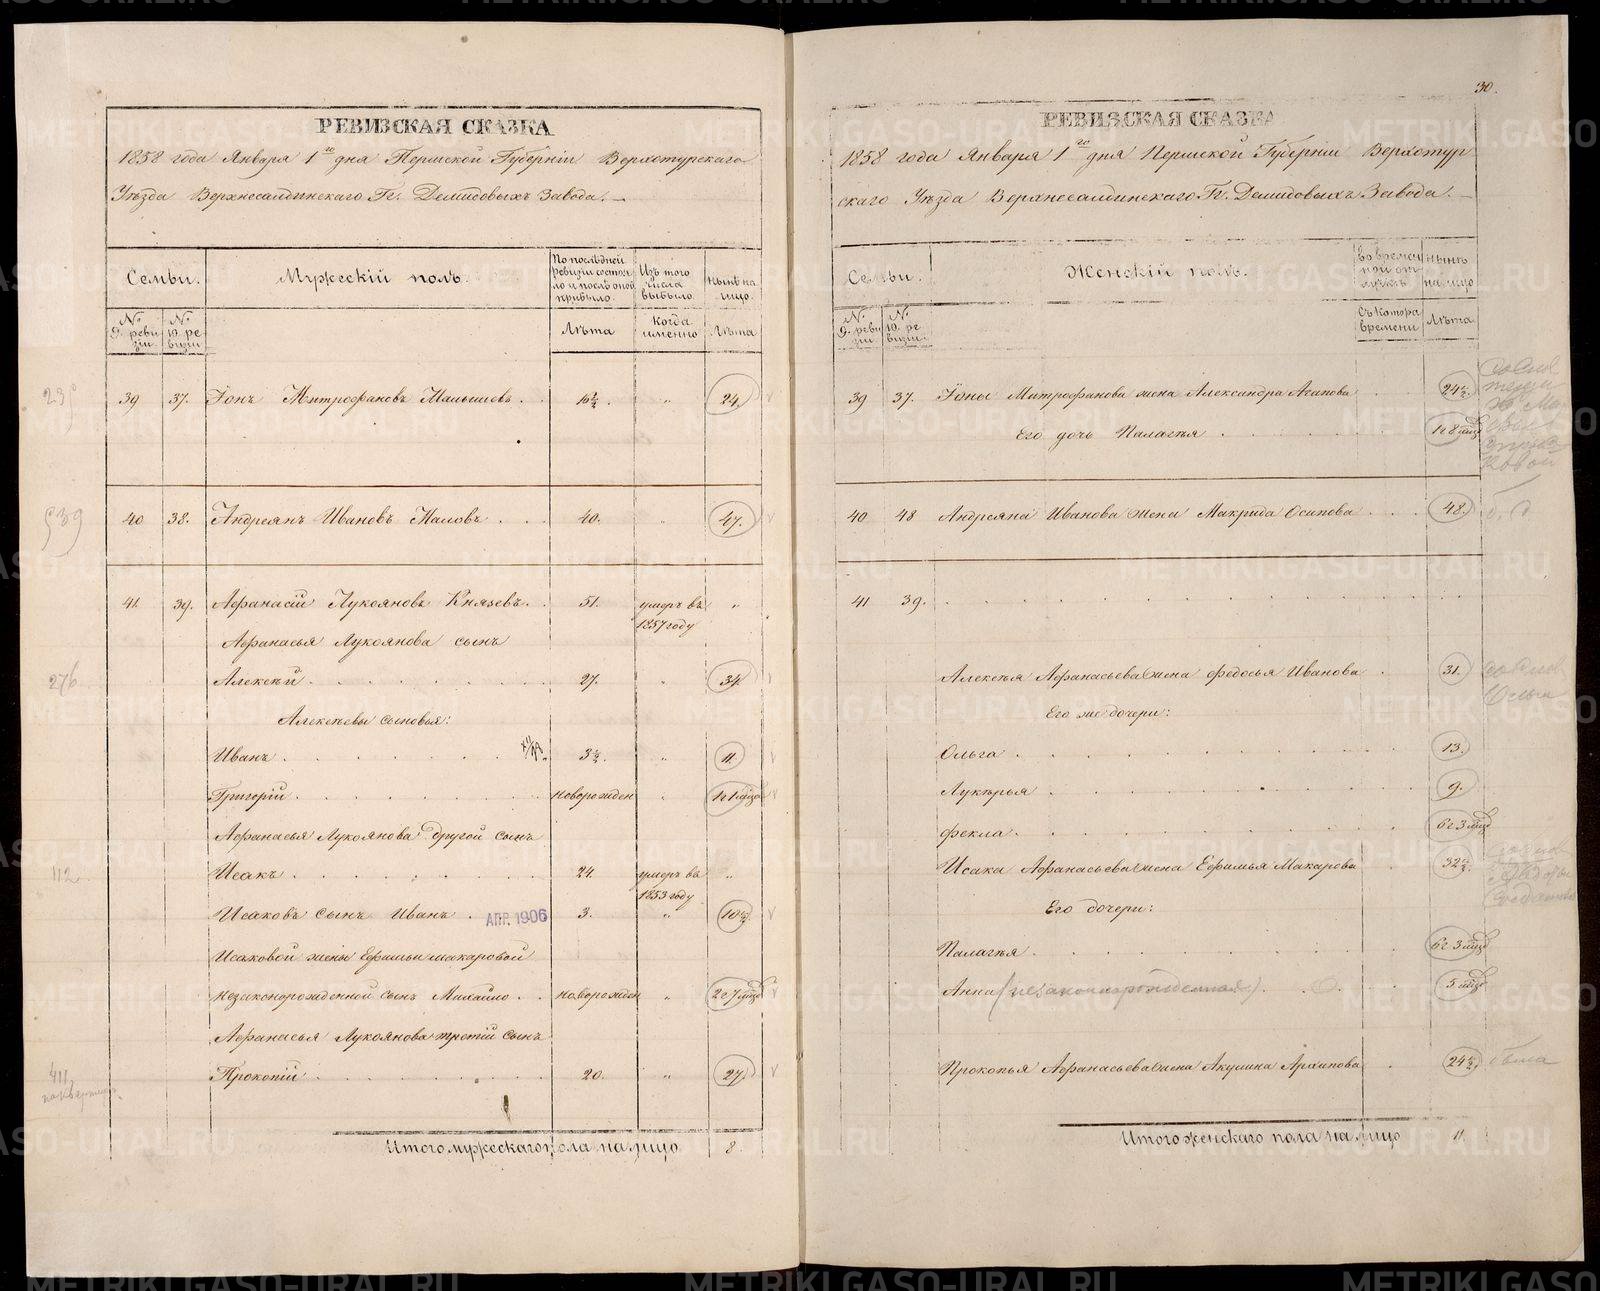 30.
РЕВИЗСКАЯ СКАЗКА
1858 года Января 1го дня Пермской Губерніи Верхотурскаго
Уѣзда Верхнесалдинскаго Гг. Демидовыхъ Завода.
Семьи. Мужескій полъ. По послѣдней ревизіи состояло и послѣ оной прибыло. Изъ того числа выбыло Нынѣ на лицо.
№ 9. ревизіи № 10. ревизіи. Лѣта Когда именно Лѣта
39 37. Іонъ Митрофановъ Малышевъ. 16½. „ 24.
40 38. Андреянъ Ивановъ Маловъ. 40. „ 47.
41. 39. Афанасій Лукояновъ Князевъ. 51. умеръ въ „
1857 году
Афанасья Лукоянова сынъ
276 Алексѣй. 27. „ 34.
Алексѣевы сыновья:
Иванъ. 3½. „ 11.
Григорій. новорожден „ 1г 1 мѣс
Афанасья Лукоянова другой сынъ
112 Исакъ. 24. умеръ въ „
1853 году
Исаковъ сынъ Иванъ. АПР. 1906 3. „ 10½
Исаковой жены Ефимьи Макаровой
незаконорожденной сынъ Михайло. новорожден „ 2г 7 мѣс
Афанасья Лукоянова третій сынъ
411 Прокопій. 20. „ 27.
Итого мужескаго пола на лицо 8.
РЕВИЗСКАЯ СКАЗКА
1858 года Января 1го дня Пермской Губерніи Верхотур
скаго Уѣзда Верхнесалдинскаго Гг. Демидовыхъ Завода.
Семьи. Женскій полъ. Во временной отлучкѣ Нынѣ на лицо
№ 9. ревизіи. № 10. ревизіи. Съ котора времени Лѣта
39 37. Іоны Митрофанова жена Александра Агапова 24½
Его дочь Палагѣя. 1г 8 мѣс
40 48 Андреяна Иванова жена Макрида Осипова 48.
41 39.
Алексѣя Афанасьева жена Федосья Иванова 31.
Его же дочери:
Ольга. 13.
Лукерья. 9.
Фекла. 6г 3 мѣс
Исака Афанасьева жена Ефимья Макарова 32½
Его дочери:
Палагѣя. 6г 3 мѣс
Анна (незаконнорожденная). 5 мѣс
Прокопья Афанасьева жена Акулина Архипова 24½
Итого женскаго пола на лицо 11.
METRIKI.GASO-URAL.RU